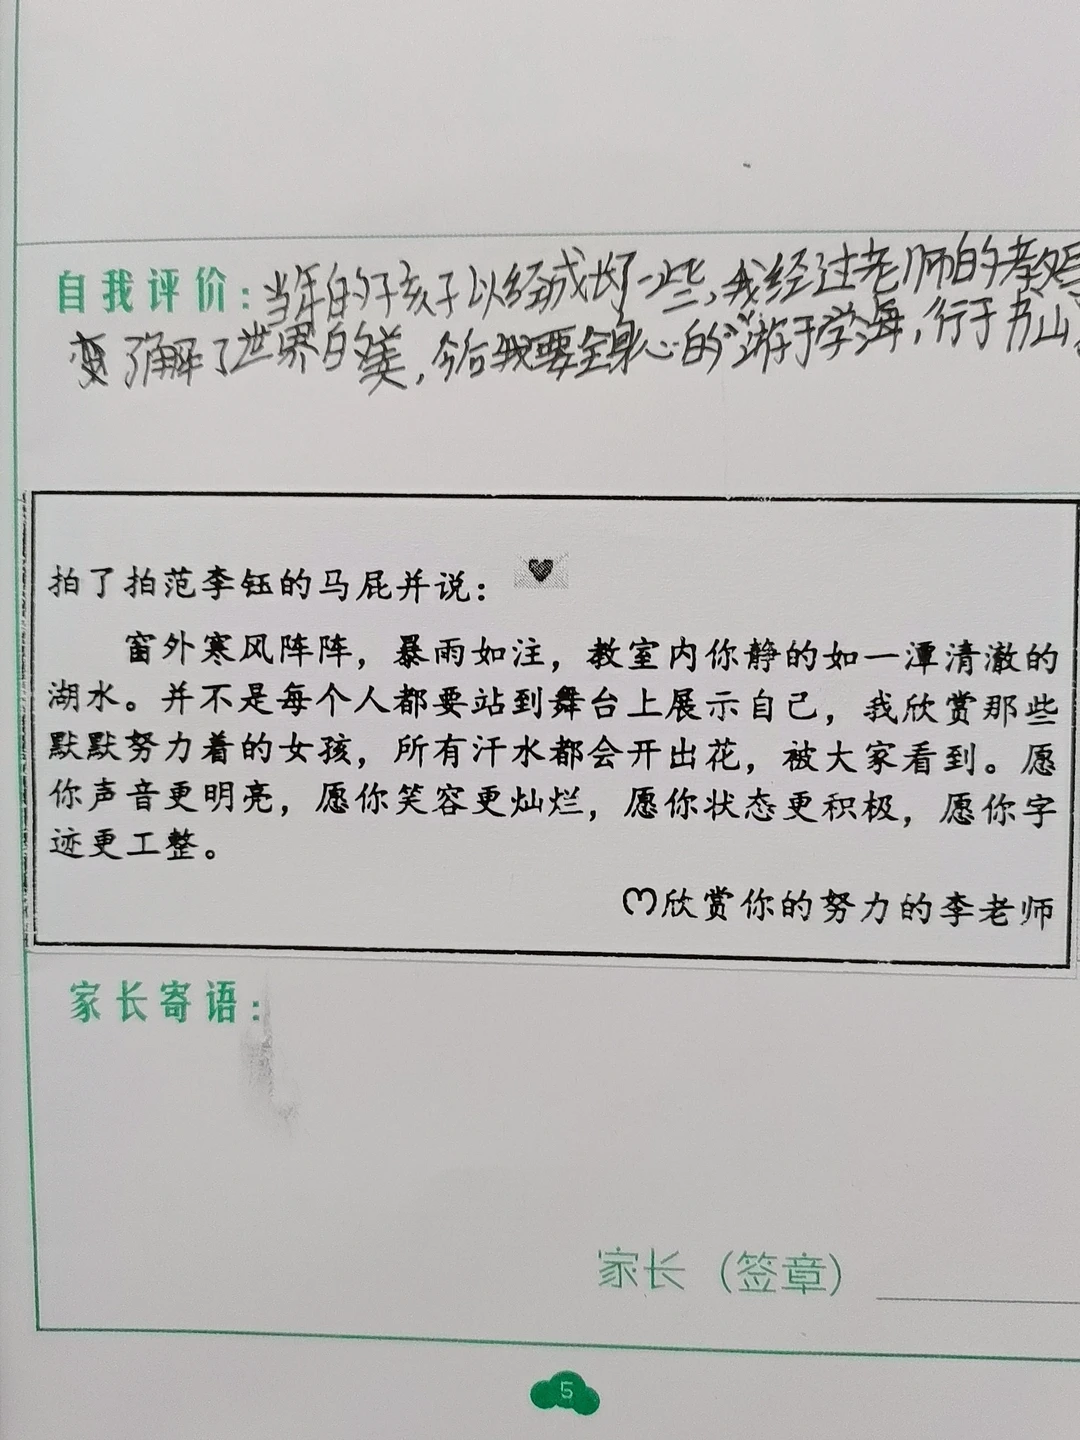 自我评价：当年的孩子以经成长了一些，我经过老师的教
变了解了世界的美，今后我要全身心的游于学海，行于书山
拍了拍范李钰的马屁并说：
窗外寒风阵阵，暴雨如注，教室内你静的如一潭清澈的
湖水。并不是每个人都要站到舞台上展示自己，我欣赏那些
默默努力着的女孩，所有汗水都会开出花，被大家看到。愿
你声音更明亮，愿你笑容更灿烂，愿你状态更积极，愿你字
迹更工整。
欣赏你的努力的李老师
家长寄语：
家长（签章）
5